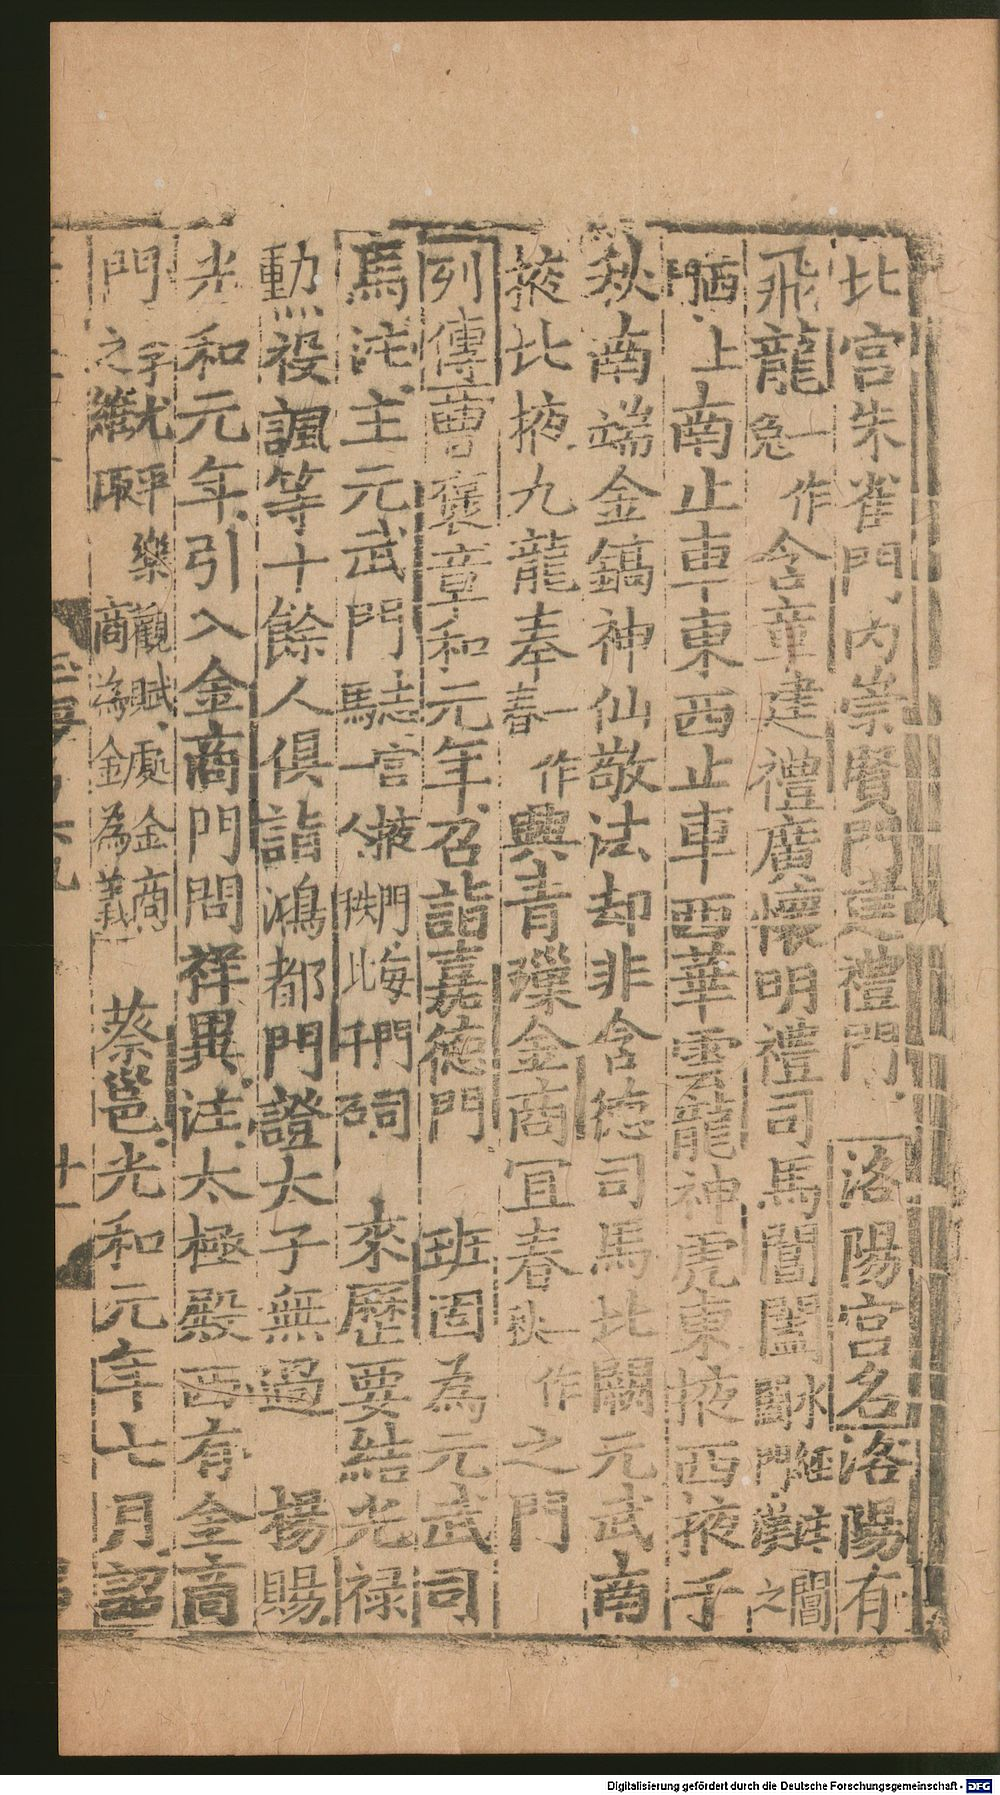 北宮朱雀門内崇賢門建禮門 洛陽宮名洛陽有
飛龍一作兔含章建禮廣懷明禮司馬閶闔水經注閶闔門漢之
上南止車東西止車西華雲龍神虎東掖西掖千
秋南端金鎬神仙敬法却非含德司馬北闕元武南
掖北掖九龍奉一作春興青璅金商宜春一作秋之門
列傳曹褒章和元年召詣嘉德門 班固為元武司
馬注主元武門 來歷要結光禄
勳祋諷等十餘人俱詣鴻都門證太子無過 楊賜
光和元年引入金商門問祥異注太極殿西有金商
門李尤平樂觀賦處金商之維取商為金為義 蔡邕光和元年七月詔
十一
Digitalisierung gefördert durch die Deutsche Forschungsgemeinschaft - DFG